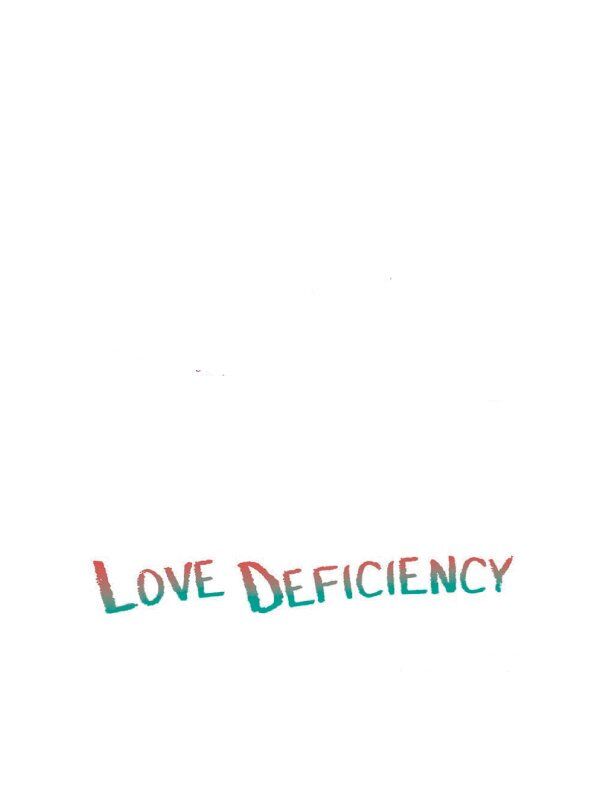 LOVE DEFICIENCY